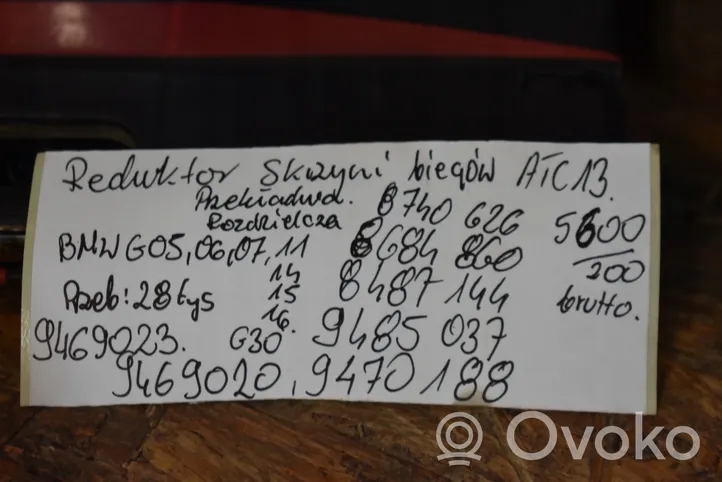 Reduktor Skrzyni biegów ATC13.
Przekładnia. 8740 626 5600
Rozdzielcza
BMW G05, 06, 07, 11 8684 860 200
14
Przeb: 28 tys 15 8487 144 brutto.
16.
9469023. G30 9485 037
9469020, 9470 188
Ovoko